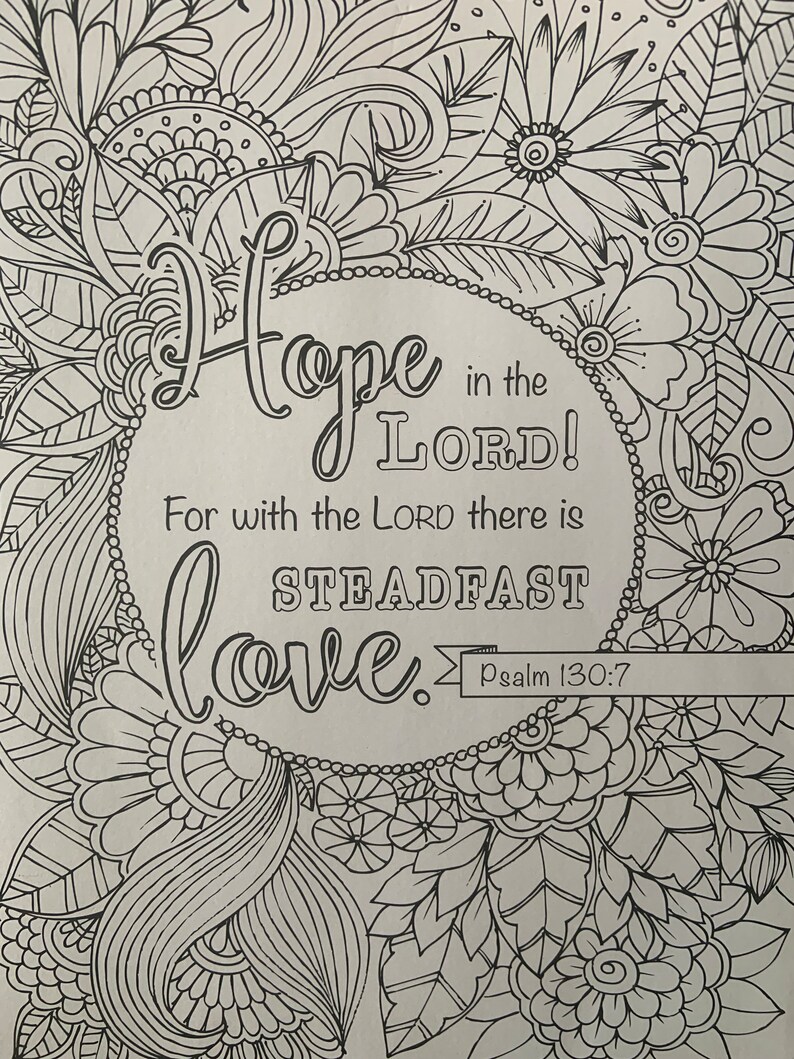 Hope in the
LORD!
For with the LORD there is
STEADFAST
love.
Psalm 130:7